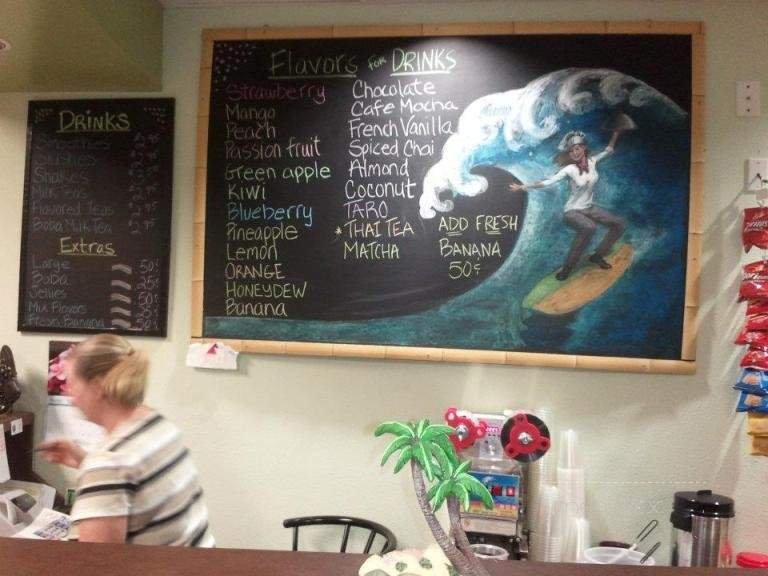 DRINKS
Smoothies
Slushies
Shakes
Milk Teas
Flavored Teas
Boba Milk Tea
Extras
Large 50¢
Boba 25¢
Jellies 50¢
Mix Flavors 25¢
Fresh Banana 50¢
Flavors for DRINKS
Strawberry
Mango
Peach
Passion fruit
Green apple
Kiwi
Blueberry
Pineapple
Lemon
ORANGE
HONEYDEW
Banana
Chocolate
Cafe Mocha
French Vanilla
Spiced Chai
Almond
Coconut
TARO
*THAI TEA
MATCHA
ADD FRESH
BANANA
50¢